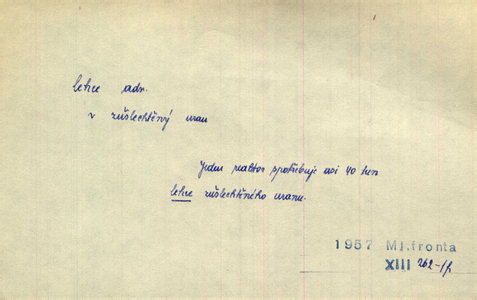 lehce adv.
v zušlechtěný uran
Jeden reaktor spotřebuje asi 40 tun
lehce zušlechtěného uranu.
1957 Ml.fronta
XIII 262-1/2